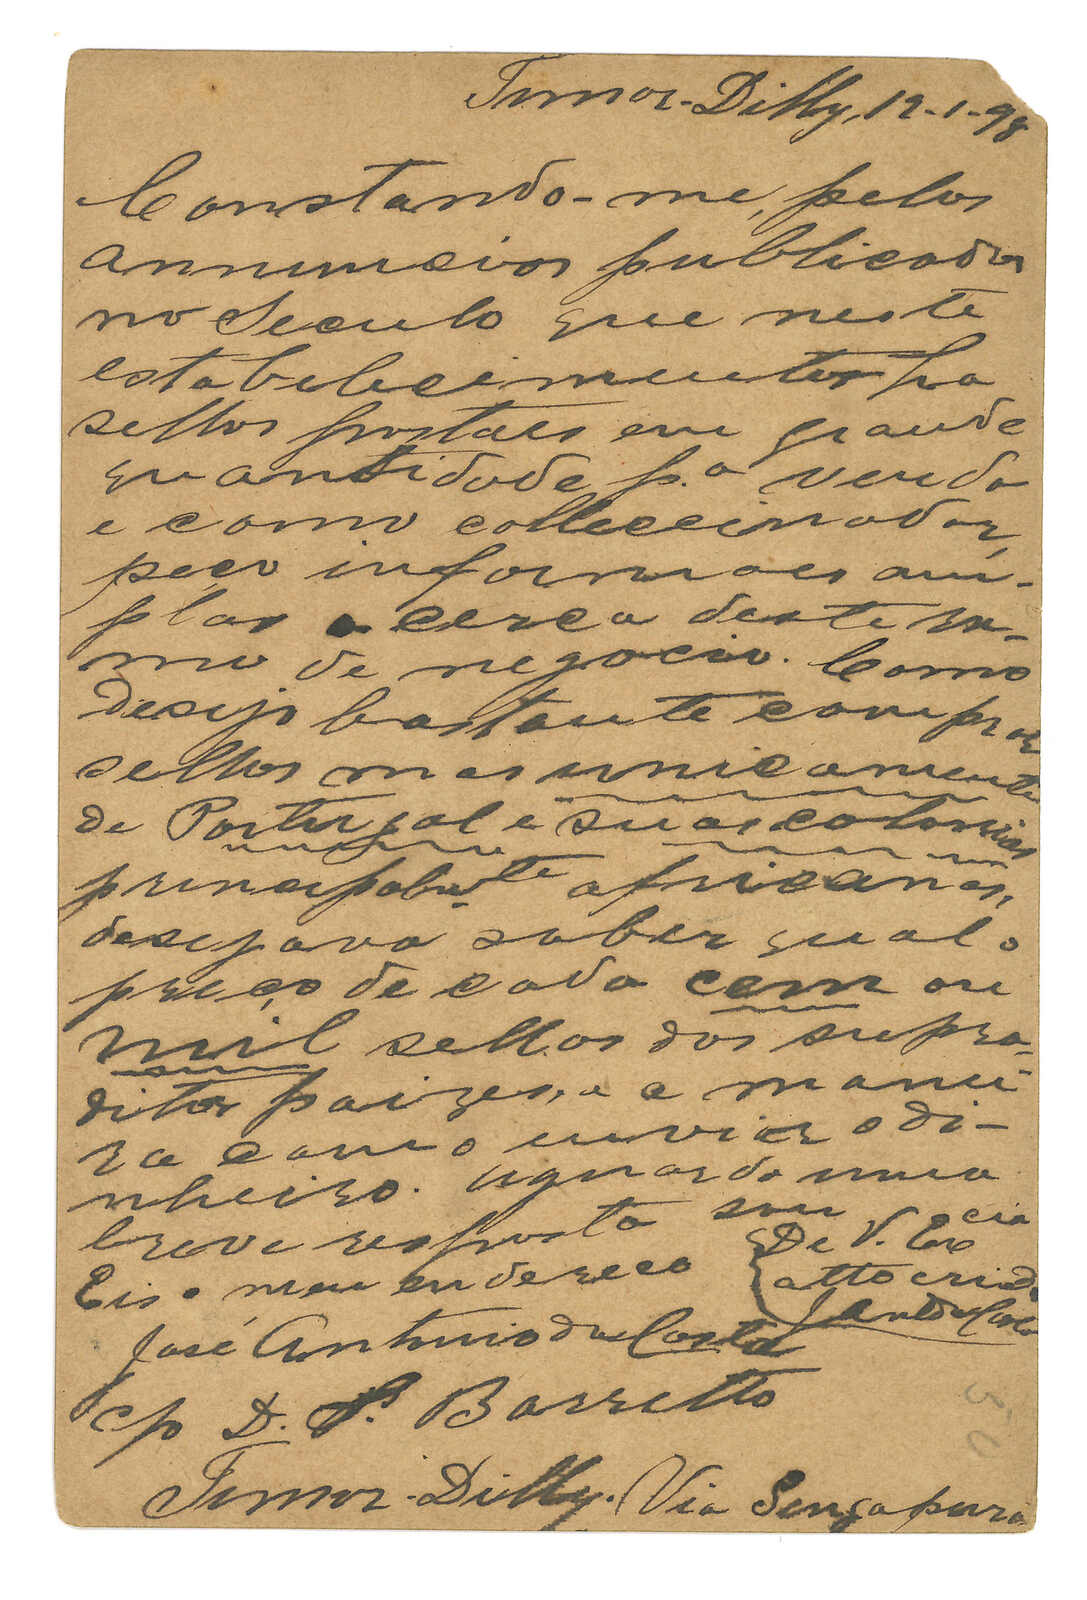 Timor-Dilly, 12-1-98
Constando-me, pelos
annuncios publicados
no Seculo que neste
estabelecimento ha
sellos postaes em grande
quantidade p.a venda
e como colleccionador,
peço informaes am-
plas a cerca deste ra-
mo de negocio. Como
desejo bastante comprar
sellos mas unicamente
de Portugal e suas colonias
principalm.te africanas,
desejava saber qual o
preço de cada cem ou
mil sellos dos supra-
ditos paizes, e a manei-
ra como enviar o di-
nheiro. Aguardo uma
breve resposta sou
De V. Exe cia
atto criado
J. Ant. da Costa
Eis o meu endereco
José Antonio da Costa
c/o D. P. Barretto
Timor-Dilly. Via Singapura